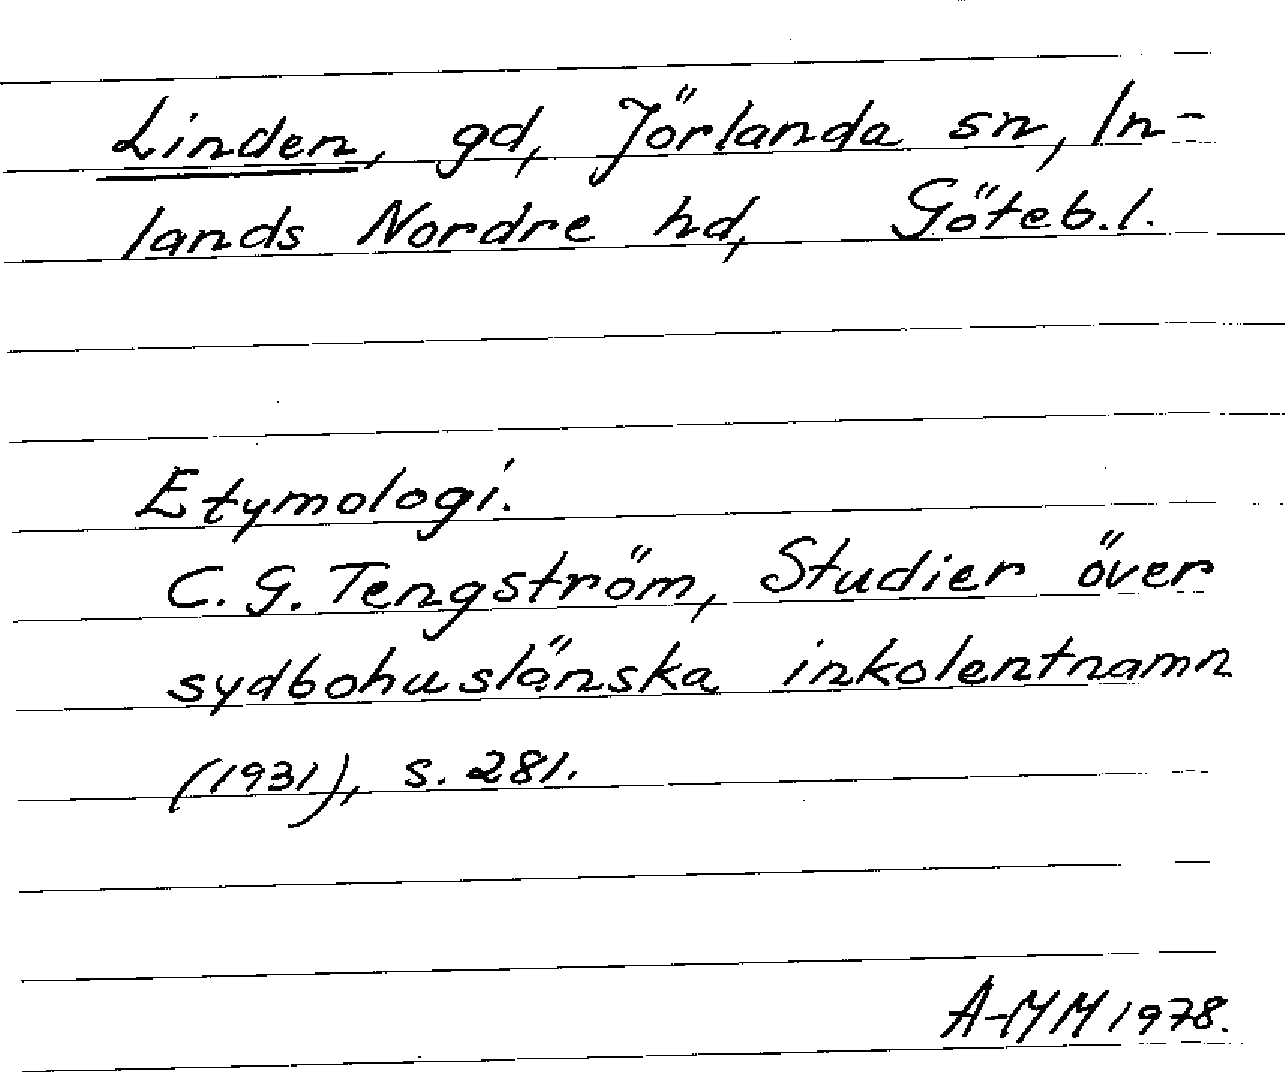 Linden, gd, Jörlanda sn, In-
lands Nordre hd, Göteb.l.
Etymologi.
C. G. Tengström, Studier över
sydbohuslänska inkolentnamn
(1931), s. 281.
A-MM 1978.